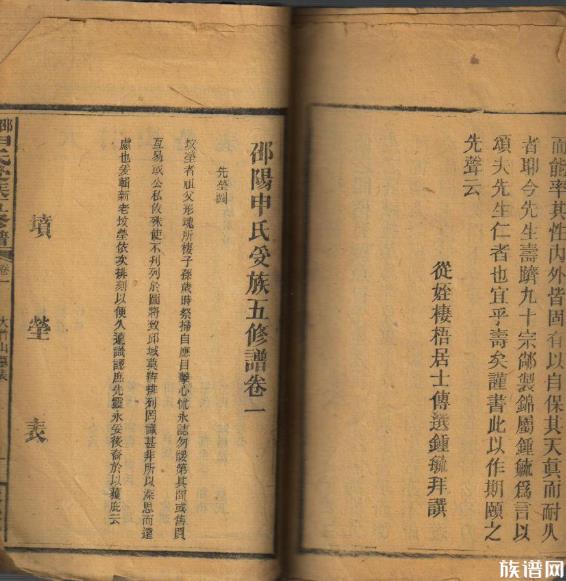 而能率其性內外皆固有以自保其天真而耐久
者耶今先生壽躋九十宗鄰製錦屬鍾毓爲言以
頌夫先生仁者也宜乎壽矣謹書此以作期頤之
先聲云
從姪棲梧居士傳選鍾毓拜譔
邵陽申氏受族五修譜卷一
先塋圖
墳塋者祖父形魂所棲子孫歲時祭掃自應目擊心怵永誌勿諼第其間或傳買
互易或公私攸殊使不利列於圖將致邱域莫辨排列罔識甚非所以秦思而遠
慮也爰輯新老墳塋依次排刻以便久遠識認庶先靈永妥後裔於以獲庇云
墳塋表
申氏受族五修譜
卷一
族谱网